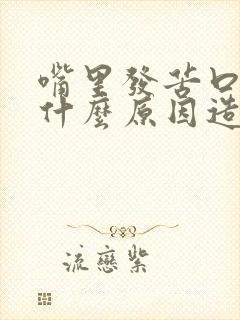 嘴里發苦口
什麼原因造
流戀紫